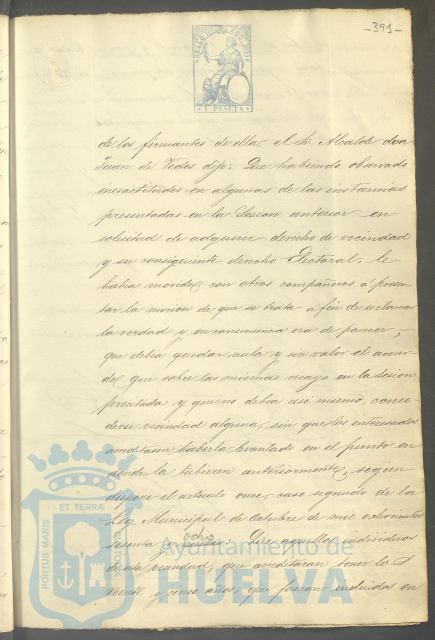 -391-
1 PESETA
de los firmantes de ella el Sr. Alcalde don
Juan de Vides dijo: Que habiendo observado
inexactitudes en algunas de las instancias
presentadas en la Sesion anterior en
solicitud de adquirir derecho de vecindad
y su consiguiente derecho Electoral, le
habia movido con otros compañeros á presen-
tar la mocion de que se trata á fin de esclarecer
la verdad y en consecuencia era de parecer,
que debia quedar nulo y sin valor el acuer-
do que sobre las mismas recayó en la Sesion
precitada y que no debia asi mismo, conce-
derse vecindad alguna, sin que los interesados
acreditasen haberla levantado en el punto en
donde la tubieren anteriormente, segun
dispone el articulo once, caso segundo de la
Ley Municipal de Octubre de mil ochocientos
sesenta y ocho: Que aquellos individuos
de esta vecindad, que acreditaran tener los
veinte y cinco años, que fueran incluidos en
PORTUS MARIS
ET TERRÆ
Ayuntamiento de
HUELVA